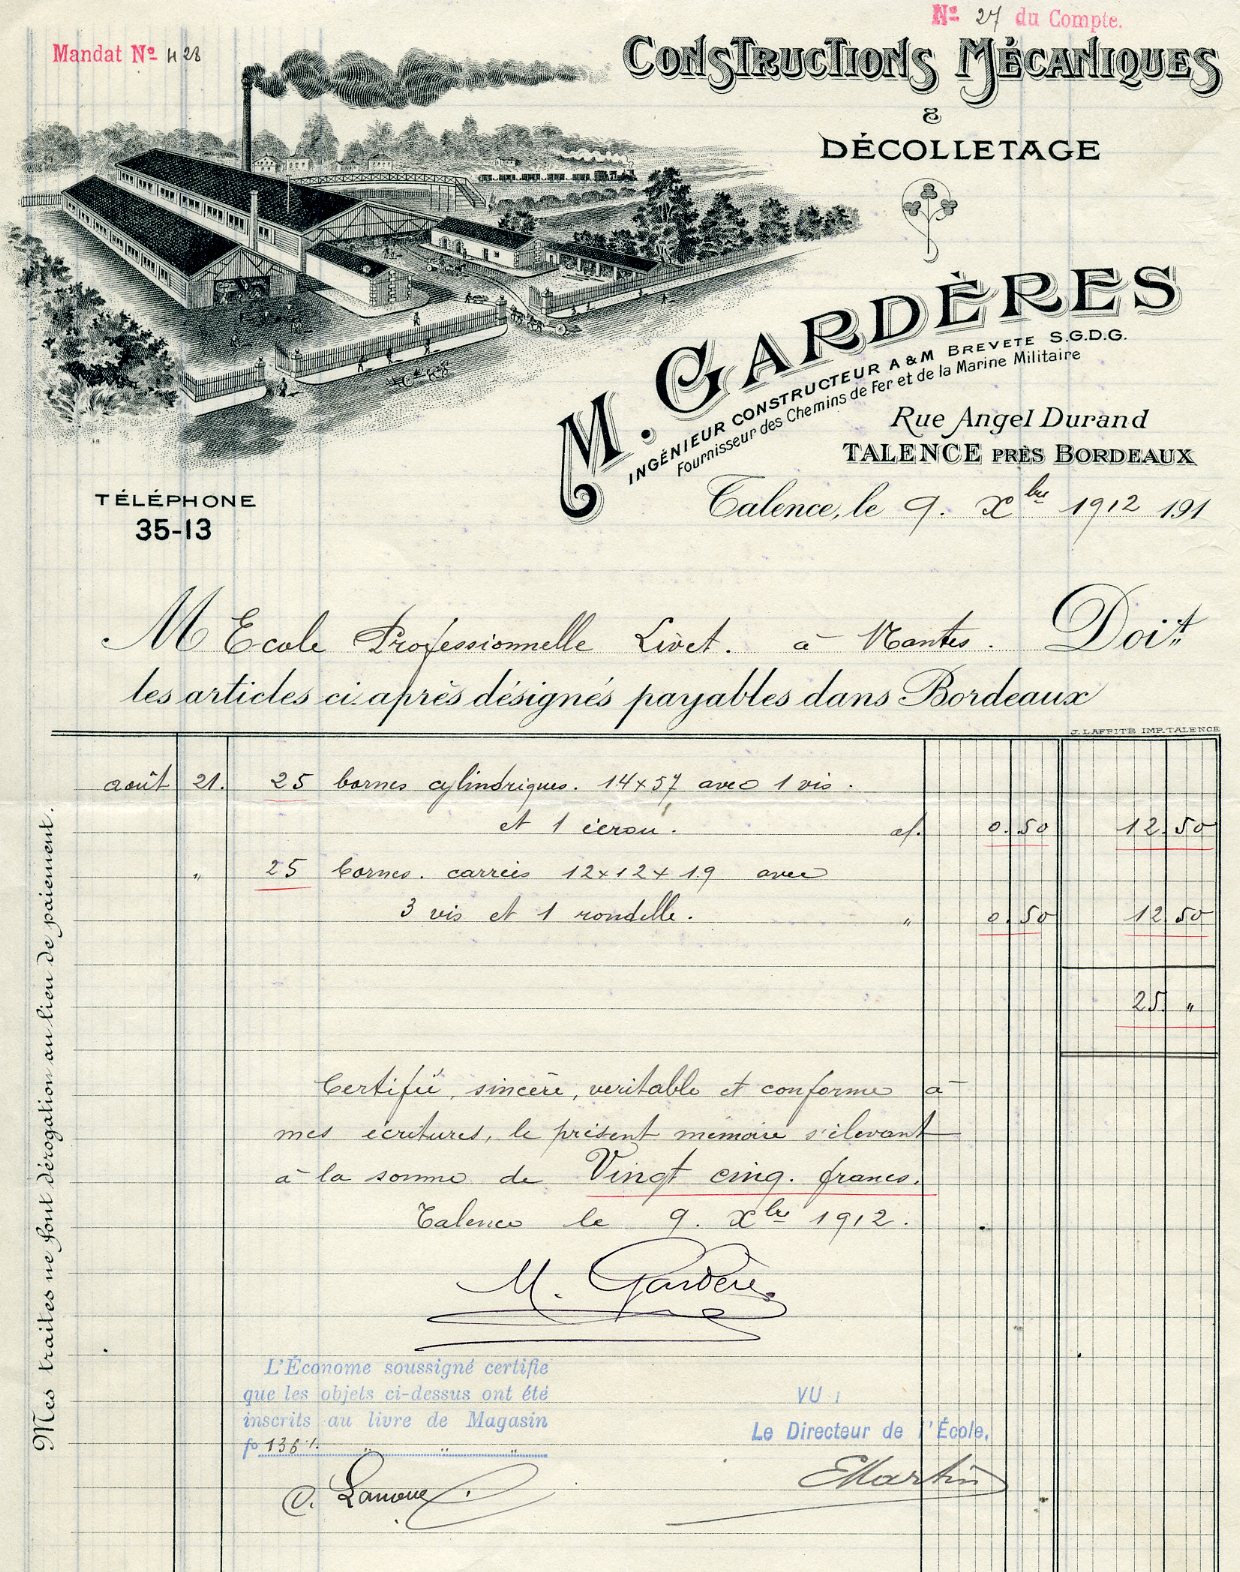 Mandat Nº 428
Nº 27 du Compte.
CONSTRUCTIONS MÉCANIQUES
&
DÉCOLLETAGE
M. GARDÈRES
INGÉNIEUR CONSTRUCTEUR A & M BREVETÉ S.G.D.G.
Fournisseur des Chemins de Fer et de la Marine Militaire
Rue Angel Durand
TALENCE PRÈS BORDEAUX
TÉLÉPHONE
35-13
Talence, le 9. Xbre 1912 191
M Ecole Professionnelle Livet. à Nantes. Doit
les articles ci-après désignés payables dans Bordeaux
J. LAFFITE IMP. TALENCE
août 21. 25 bornes cylindriques. 14x57 avec 1 vis.
et 1 écrou. 0.50 12.50
" 25 bornes. carrées 12x12x19 avec
3 vis et 1 rondelle. " 0.50 12.50
25 "
Certifié, sincère, veritable et conforme à
mes écritures, le présent mémoire s'élevant
à la somme de Vingt cinq. francs.
Talence le 9. Xbre 1912.
M. Gardères
L'Économe soussigné certifie
que les objets ci-dessus ont été
inscrits au livre de Magasin
fo 136
VU :
Le Directeur de l'École,
EMartin
Mes traites ne font dérogation au lieu de paiement.